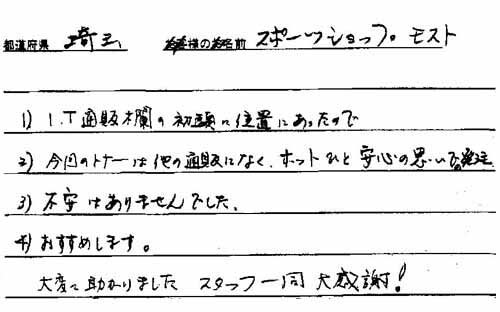 都道府県 埼玉 お客様のお名前 スポーツショップ モスト
1) I.T通販欄の初頭に位置にあったので
2) 今回のトナーは他の通販になく、ホットひと安心の思いで発注
3) 不安はありませんでした。
4) おすすめします。
大変に助かりました スタッフ一同 大感謝!